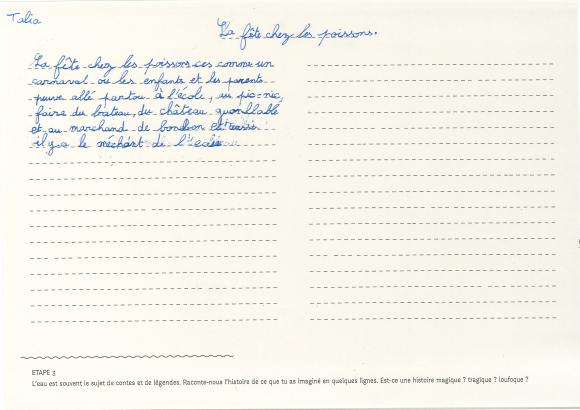 Talia
La fête chez les poissons.
La fête chez les poissons ces comme un
carnaval ou les enfants et les parents
peuve allé partou à l'école, au pic-nic,
faire du bateau, du château gonflable
et au marchand de bonbon et aussi
il y a le méchant de l'eau
ETAPE 3
L'eau est souvent le sujet de contes et de légendes. Raconte-nous l'histoire de ce que tu as imaginé en quelques lignes. Est-ce une histoire magique ? tragique ? loufoque ?